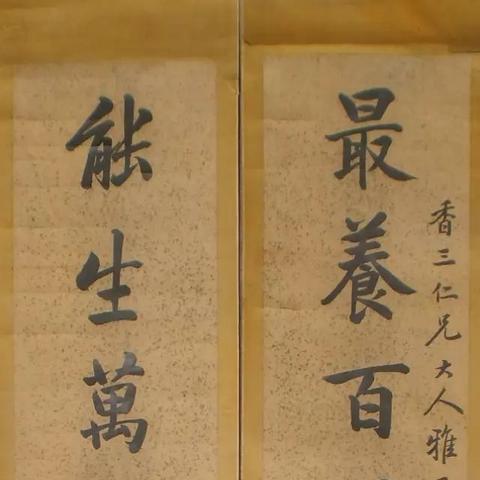 香三仁兄大人雅
最養百
能生萬